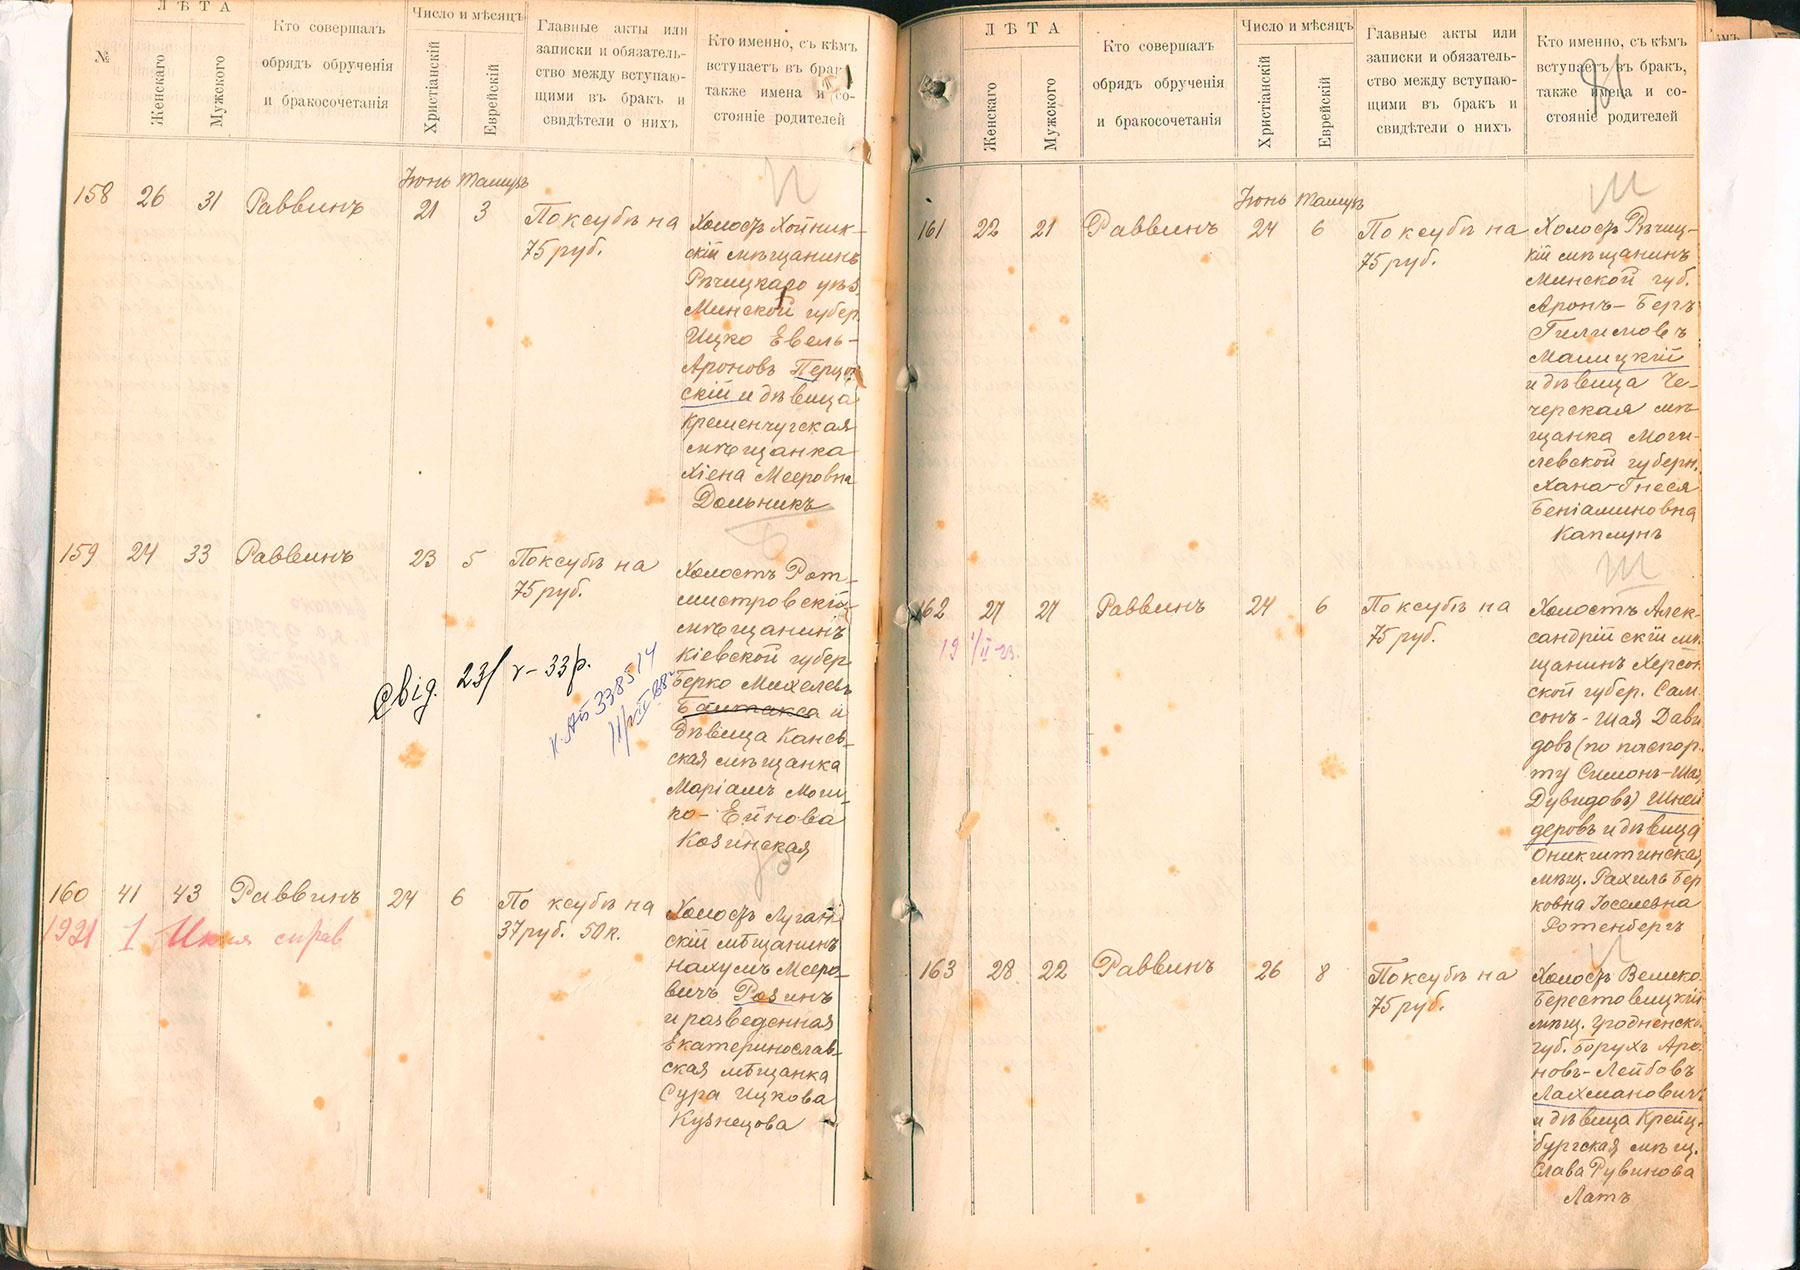 №
ЛѢТА
Женскаго
Мужского
Кто совершалъ
обрядъ обрученія
и бракосочетанія
Число и мѣсяцъ
Христіанскій
Еврейскій
Главные акты или
записки и обязатель-
ство между вступаю-
щими въ бракъ и
свидѣтели о нихъ
Кто именно, съ кѣмъ
вступаетъ въ бракъ
также имена и со-
стояніе родителей
Іюнь Тамузъ
158 26 31 Раввинъ 21 3 По ксубѣ на
75 руб.
Холостъ Хойник-
скій мѣщанинъ
Рѣчицкаго уѣз.
Минской губер.
Ицко Евель-
Ароновъ Перцов
скій и дѣвица
Кременчугская
мѣщанка
Хіена Мееровна
Дольникъ
159 24 33 Раввинъ 23 5 По ксубѣ на
75 руб.
Холостъ Рот-
мистровскій
мѣщанинъ
Кіевской губер
Берко Михелевъ
и
дѣвица Канев-
ская мѣщанка
Маріамъ Мош-
ко-Ейнова
Козинская
Свід. 23/V-33р.
338514
160 41 43 Раввинъ 24 6 По ксубѣ на
37 руб. 50 к.
1921 I
справ
Холостъ Луган-
скій мѣщанинъ
Нахумъ Мееро-
вичъ Розинъ
и разведенная
Екатеринослав-
ская мѣщанка
Сура Ицкова
Кузнецова
ЛѢТА
Женскаго
Мужского
Кто совершалъ
обрядъ обрученія
и бракосочетанія
Число и мѣсяцъ
Христіанскій
Еврейскій
Главные акты или
записки и обязатель-
ство между вступаю-
щими въ бракъ и
свидѣтели о нихъ
Кто именно, съ кѣмъ
вступаетъ въ бракъ,
также имена и со-
стояніе родителей
Іюнь Тамузъ
161 22 21 Раввинъ 24 6 По ксубѣ на
75 руб.
Холостъ Рѣчиц-
кій мѣщанинъ
Минской губ.
Аронъ-Беръ
Гилимовъ
Малицкій
и дѣвица Че-
черская мѣ-
щанка Моги-
левской губерн.
Хана-Гнеся
Беніаминовна
Каплунъ
162 27 27 Раввинъ 24 6 По ксубѣ на
75 руб.
19 1/II-23.
Холостъ Алек-
сандрійскій мѣ-
щанинъ Херсон
ской губер. Сам-
сонъ-Шая Дави
довъ (по паспор-
ту Симонъ-Шая
Дувидовъ) Шней
деровъ и дѣвица
Оникштинская
мѣщ. Рахиль Бер
ковна Іоселевна
Ротенбергъ
163 28 22 Раввинъ 26 8 По ксубѣ на
75 руб.
Холостъ Велико-
Берестовицкій
мѣщ. Гродненско.
губ. Борухъ Аро-
новъ-Лейбовъ
Лахмановичъ
и дѣвица Крейц-
бургская мѣщ.
Слава Рувинова
Латъ